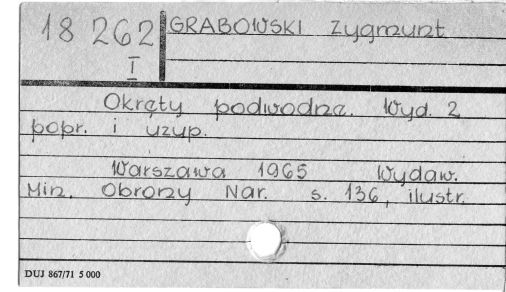 18 262
I
GRABOWSKI Zygmunt
Okręty podwodne. Wyd. 2
popr. i uzup.
Warszawa 1965 Wydaw.
Min. Obrony Nar. s. 136, ilustr.
DUJ 867/71 5 000